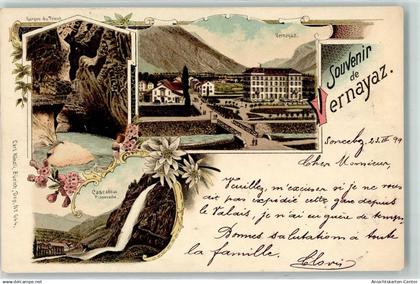 Gorges du Trient
Vernayaz.
Souvenir
de
Vernayaz.
Cascade
Pissevache
Sonceboz, 22 IX 99
Cher Monsieur,
Veuillez m'excuser si je ne vous
ai pas expédié cette carte depuis
le Valais, je n'ai eu guère de temps.
Bonnes salutations à toute
la famille.
Ansichtskarten-Center